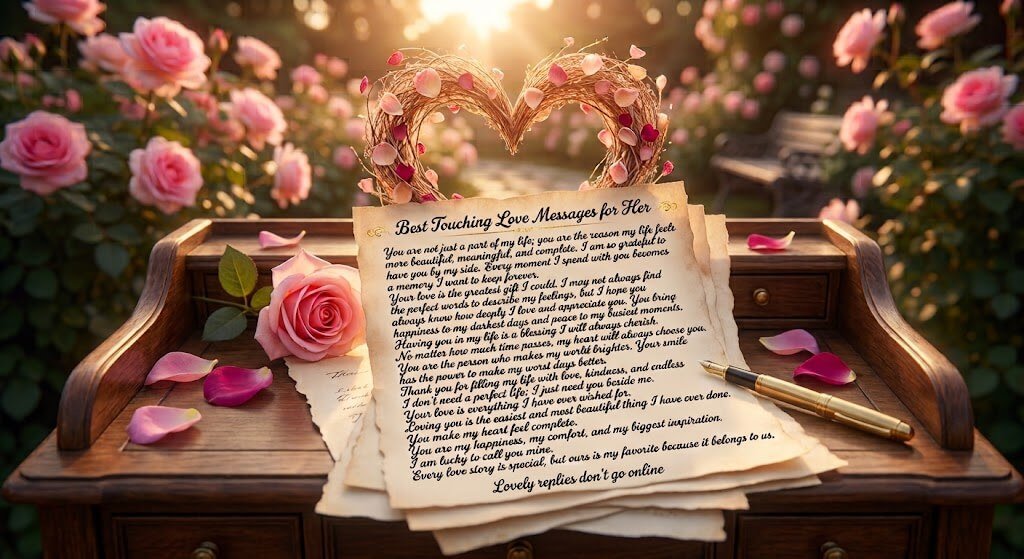 Best Touching Love Messages for Her
You are not just a part of my life; you are the reason my life feels
more beautiful, meaningful, and complete. I am so grateful to
have you by my side. Every moment I spend with you becomes
a memory I want to keep forever.
Your love is the greatest gift I could. I may not always find
the perfect words to describe my feelings, but I hope you
always know how deeply I love and appreciate you. You bring
happiness to my darkest days and peace to my busiest moments.
Having you in my life is a blessing I will always cherish.
No matter how much time passes, my heart will always choose you.
You are the person who makes my world brighter. Your smile
has the power to make my worst days better.
Thank you for filling my life with love, kindness, and endless
I don't need a perfect life; I just need you beside me.
Your love is everything I have ever wished for.
Loving you is the easiest and most beautiful thing I have ever done.
You make my heart feel complete.
You are my happiness, my comfort, and my biggest inspiration.
I am lucky to call you mine.
Every love story is special, but ours is my favorite because it belongs to us.
Lovely replies don't go online